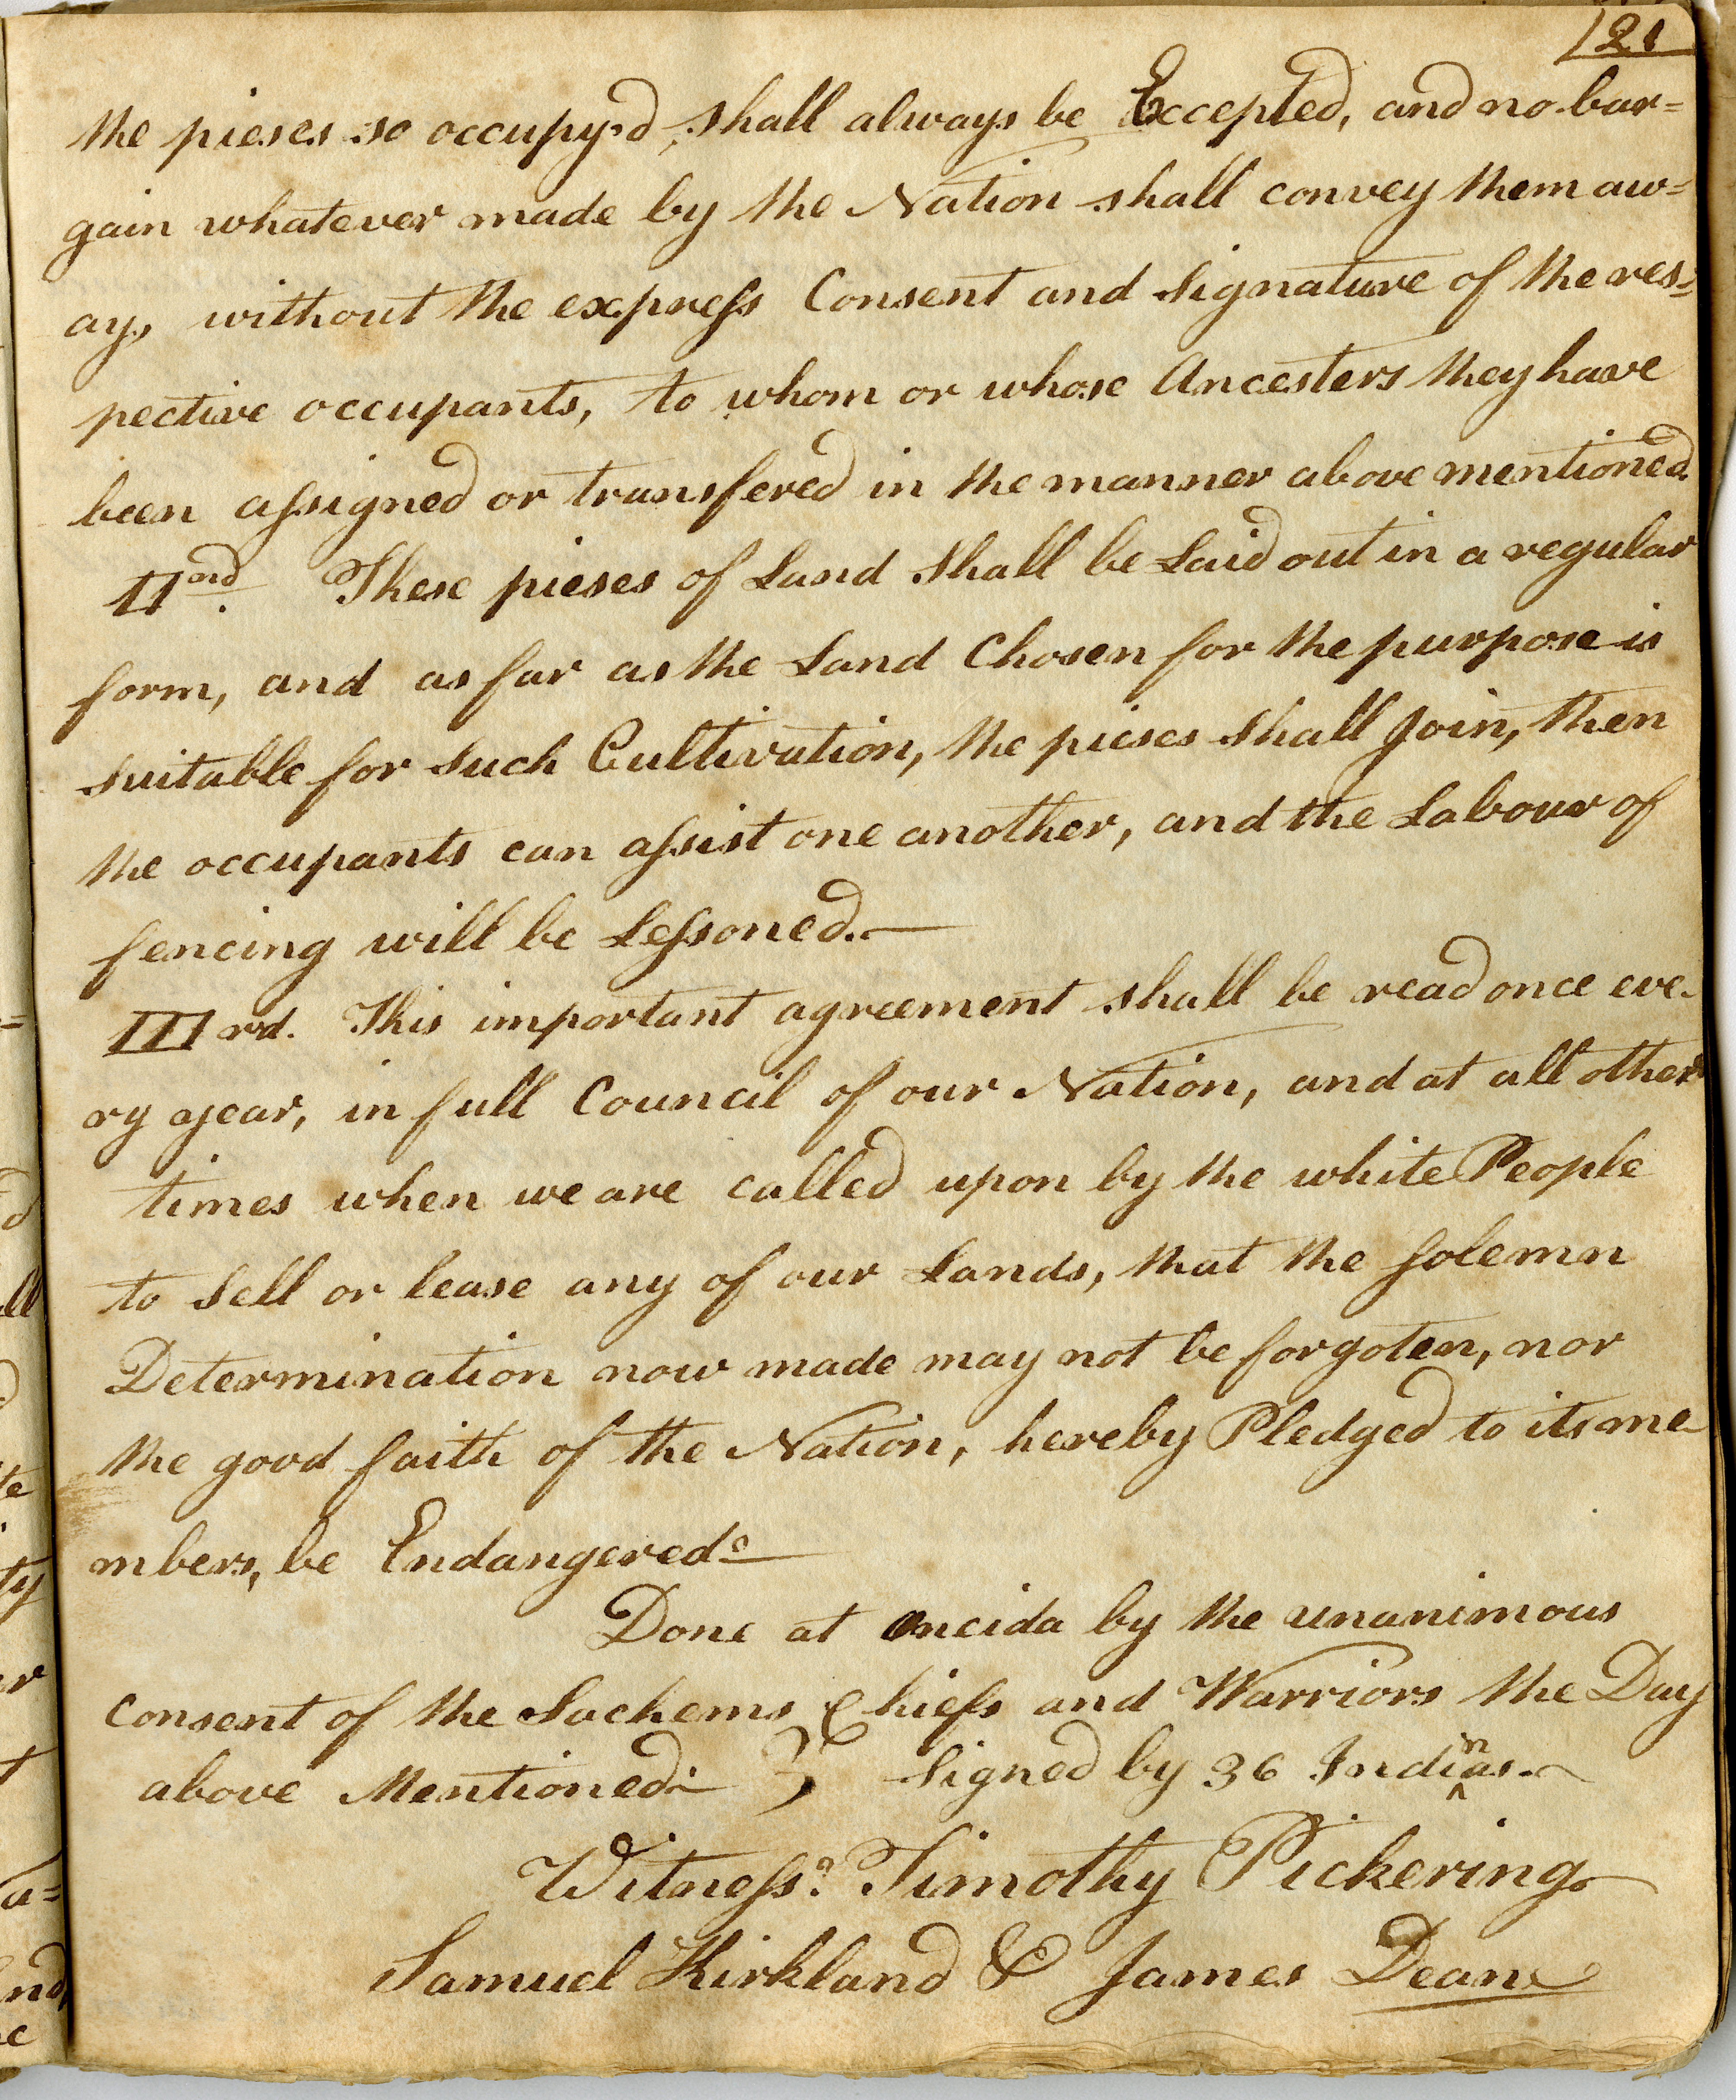 121
the pieses so occupy.d, shall always be Eccepted, and no bar=
gain whatever made by the Nation shall convey them aw=
ay, without the express Consent and Signature of the res=
pective occupants, to whom or whose Ancesters they have
been assigned or transfered in the manner above mentioned.
IInd. These pieses of Land Shall be Laid out in a regular
form, and as far as the Land Chosen for the purpose is
suitable for Such Cultivation, the pieses Shall Join, then
the occupants can assist one another, and the Labour of
fencing will be Lessoned.—
IIIrd. This important agreement shall be read once eve-
ry year, in full Council of our Nation, and at all other
times when we are called upon by the white People
to Sell or lease any of our Lands, that the Solemn
Determination now made may not be forgoten, nor
the good faith of the Nation, hereby Pledged to its me-
mbers, be Endangered.—
Done at Oneida by the unanimous
consent of the Sachems Chiefs and Warriors the Day
above Mentioned.— } Signed by 36 Indinas.—
Witness. Timothy Pickering
Samuel Kirkland & James Dean